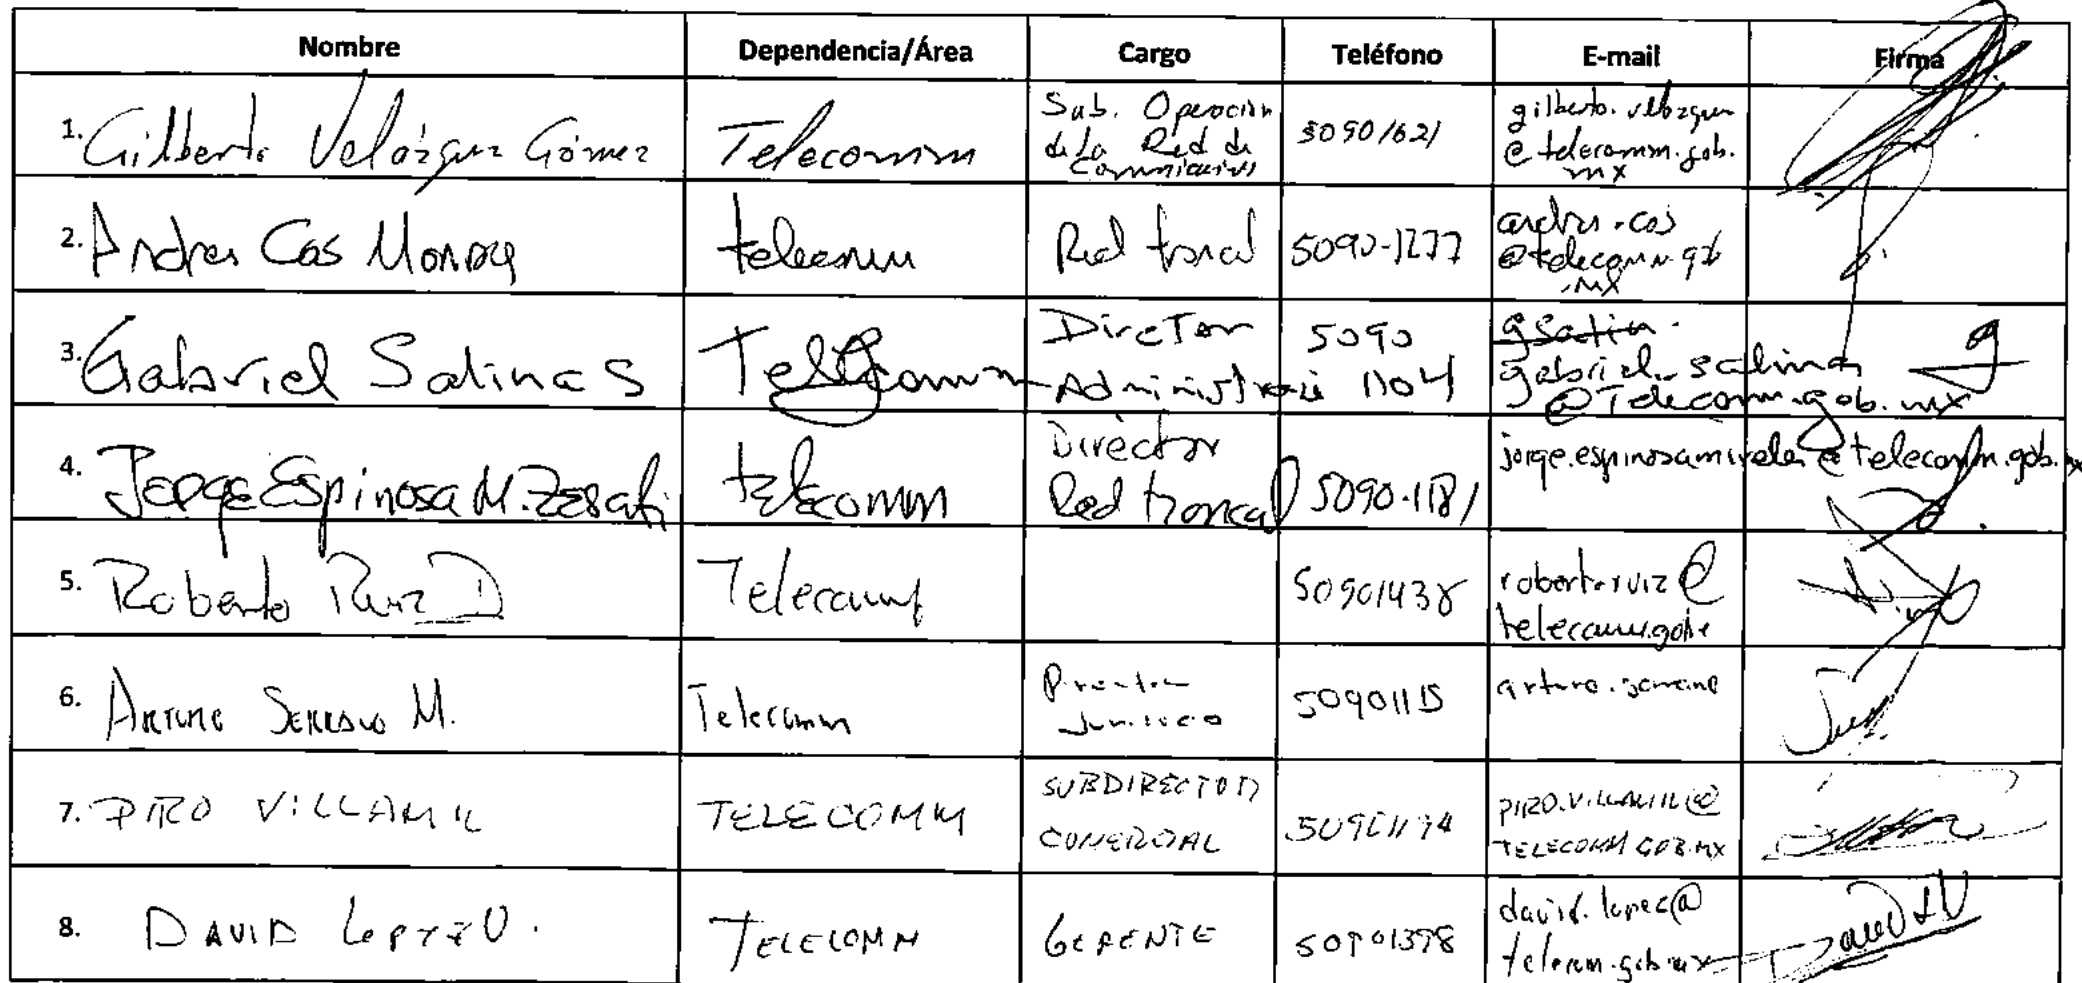 Nombre Dependencia/Área Cargo Teléfono E-mail Firma
1. Gilberto Velázquez Gómez Telecomm Sub. Operación de la Red de Comunicaciones 50901621 gilberto.velazquez @telecomm.gob. mx
2. Andres Cos Monroy telecomm Red troncal 5090-1277 andres.cos @telecomm.gob .mx
3. Gabriel Salinas Telecomm Director Administrativo 5090 1104 gabriel.salinas @Telecomm.gob.mx
4. Jorge Espinosa M. telecomm Director Red troncal 5090-1181 jorge.espinosamireles@telecomm.gob.mx
5. Roberto Ruiz D Telecomm 50901438 roberto.ruiz@ telecomm.gob
6. Arturo Serrano M. Telecomm Director Jurídico 50901115 arturo.serrano
7. PIRO VILLAMIL TELECOMM SUBDIRECTOR COMERCIAL 50901194 PIRO.VILLAMIL@ TELECOMM.GOB.MX
8. DAVID LOPEZ V. TELECOMM GERENTE 50901398 david.lopez@ telecomm.gob.mx